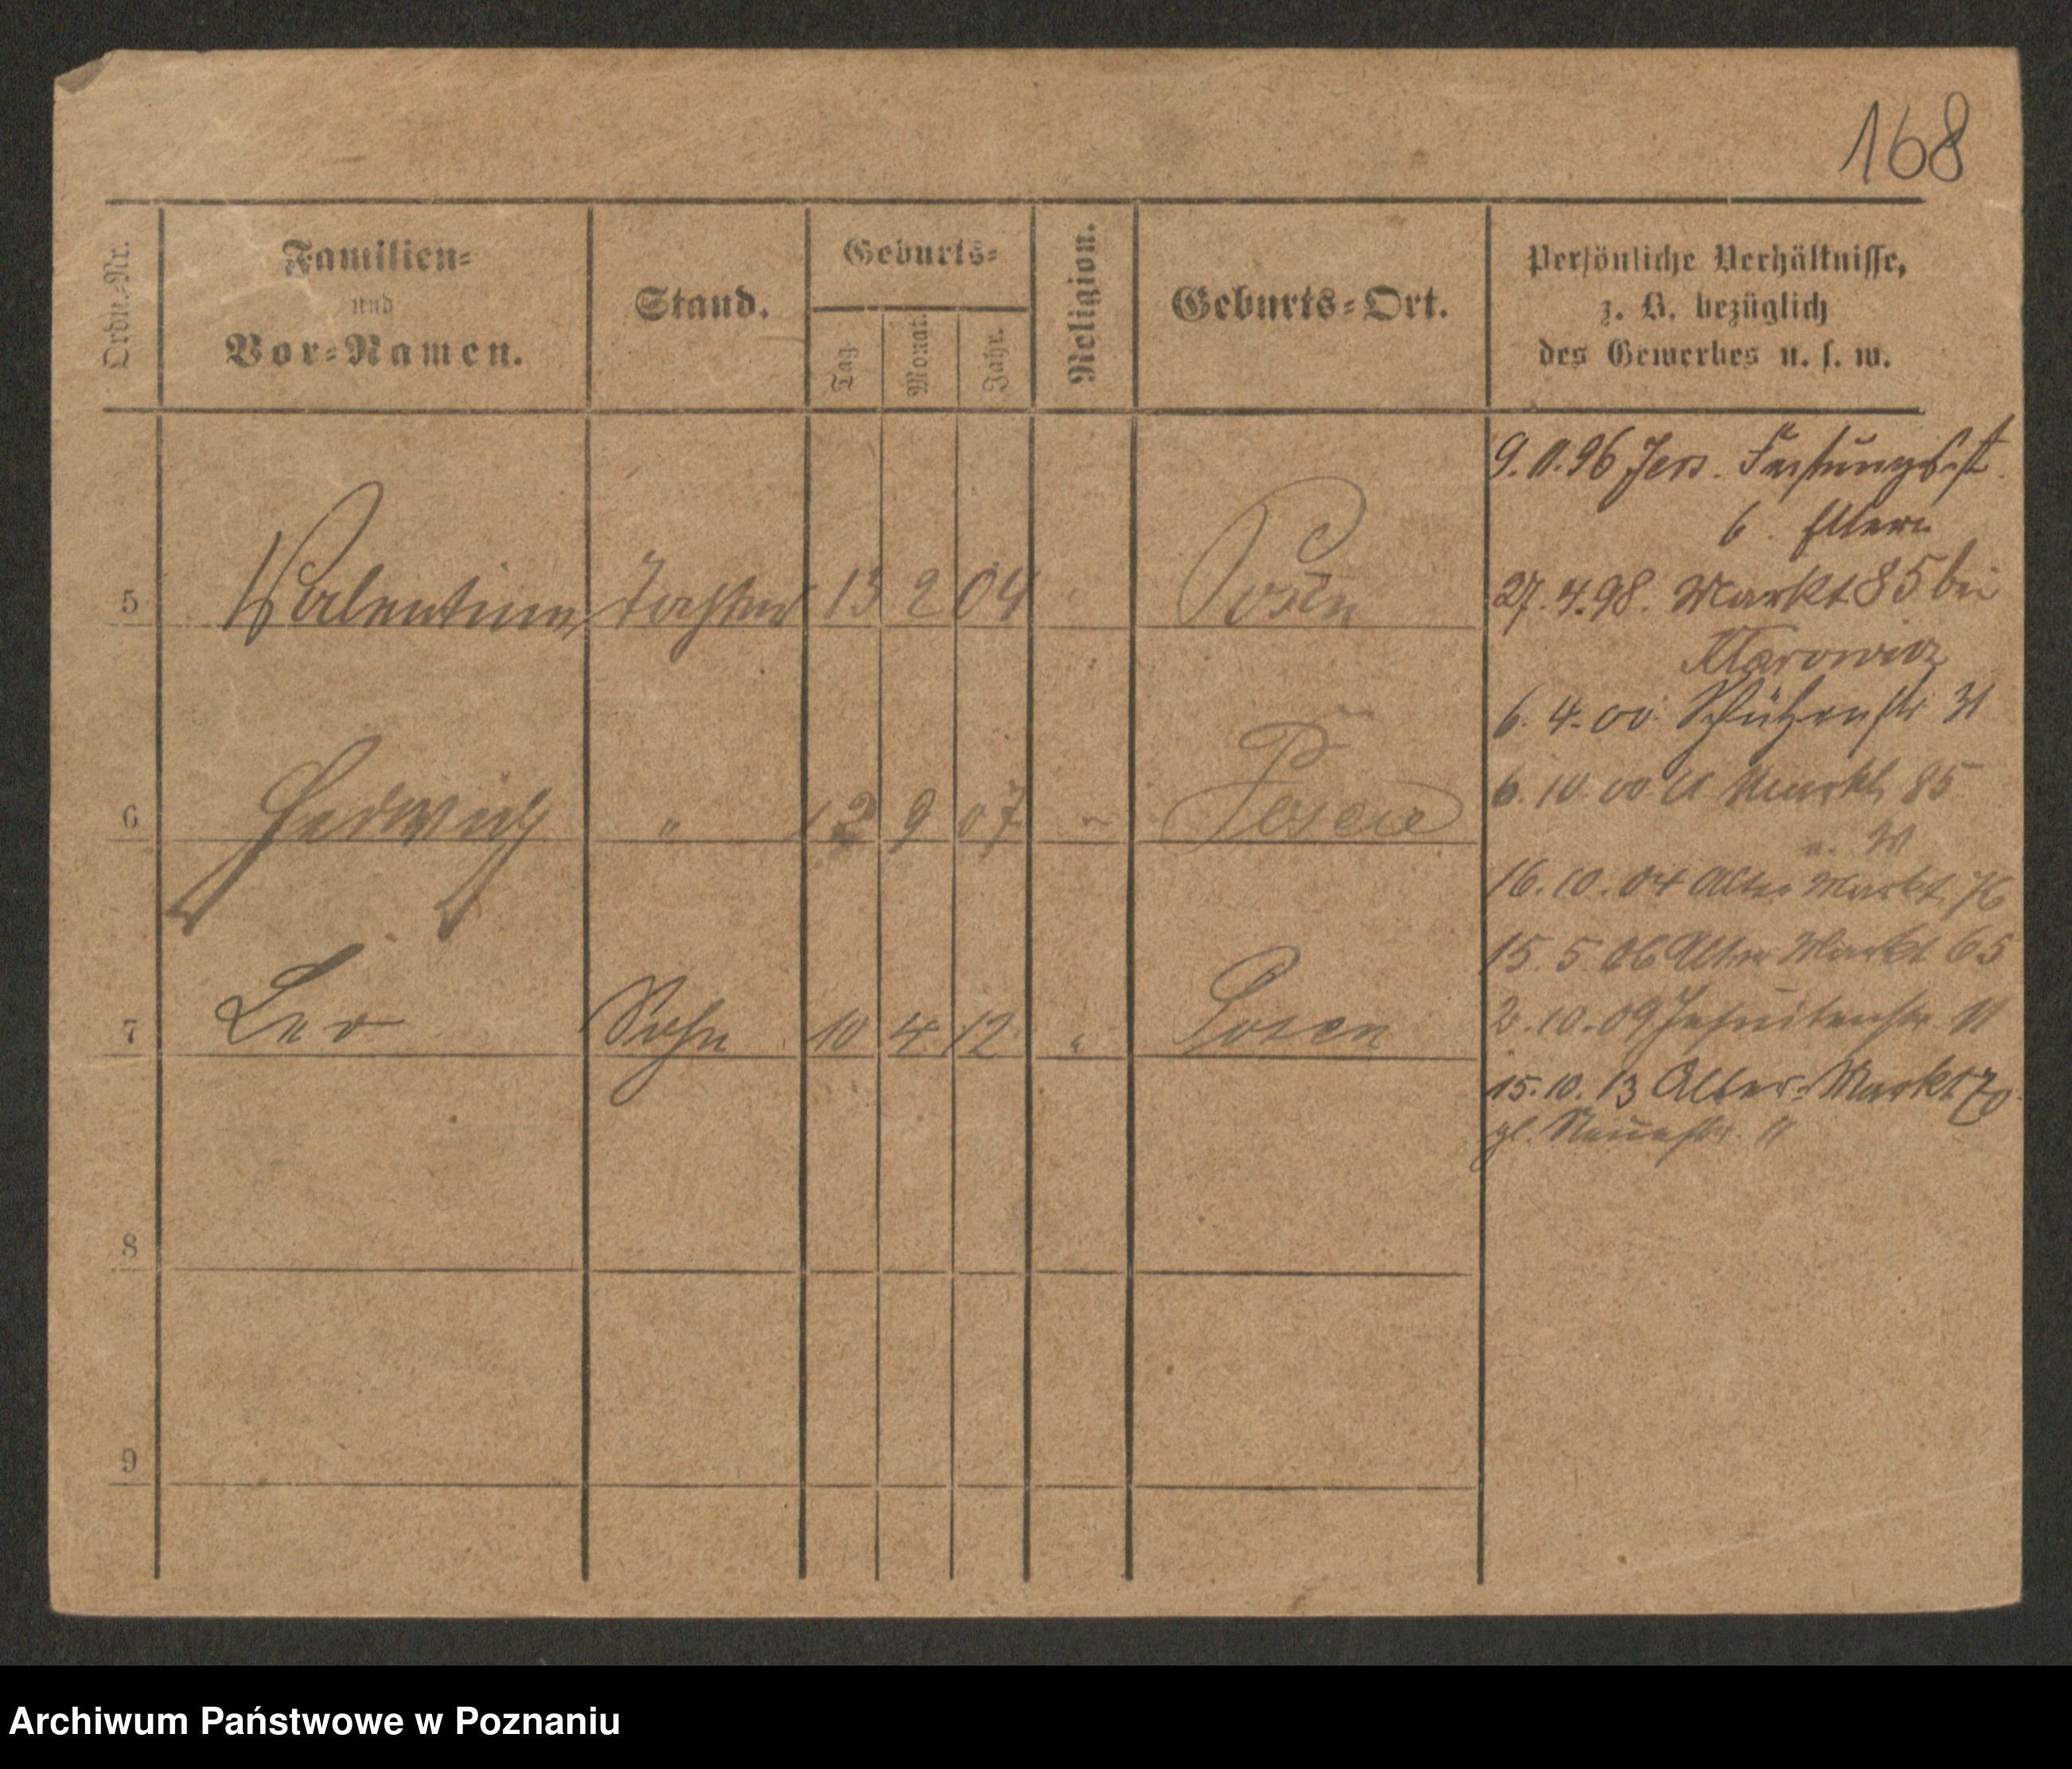 168
Ordn.-Nr.
Familien-
und
Vor-Namen.
Stand.
Geburts-
Tag
Monat.
Jahr.
Religion.
Geburts-Ort.
Persönliche Verhältnisse,
z. B. bezüglich
des Gewerbes u. s. w.
5 Valentine Tochter 13 2 04 Posen
6 Hedwig " 12 9 07 Posen
7 Leo Sohn 10 4 12 " Posen
8
9
9. 11. 96 Jers. Festungsst.
6. Eltern
27. 4. 98. Markt 85 bei
6. 4. 00. Schützenstr. 31
6. 10. 00 A Markt 85
16. 10. 04 Alter Markt 76
15. 5. 06 Alter Markt 65
2. 10. 09 Jesuitenstr. 11
15. 10. 13 Alter-Markt 70
gl. Neuestr. 11
Archiwum Państwowe w Poznaniu